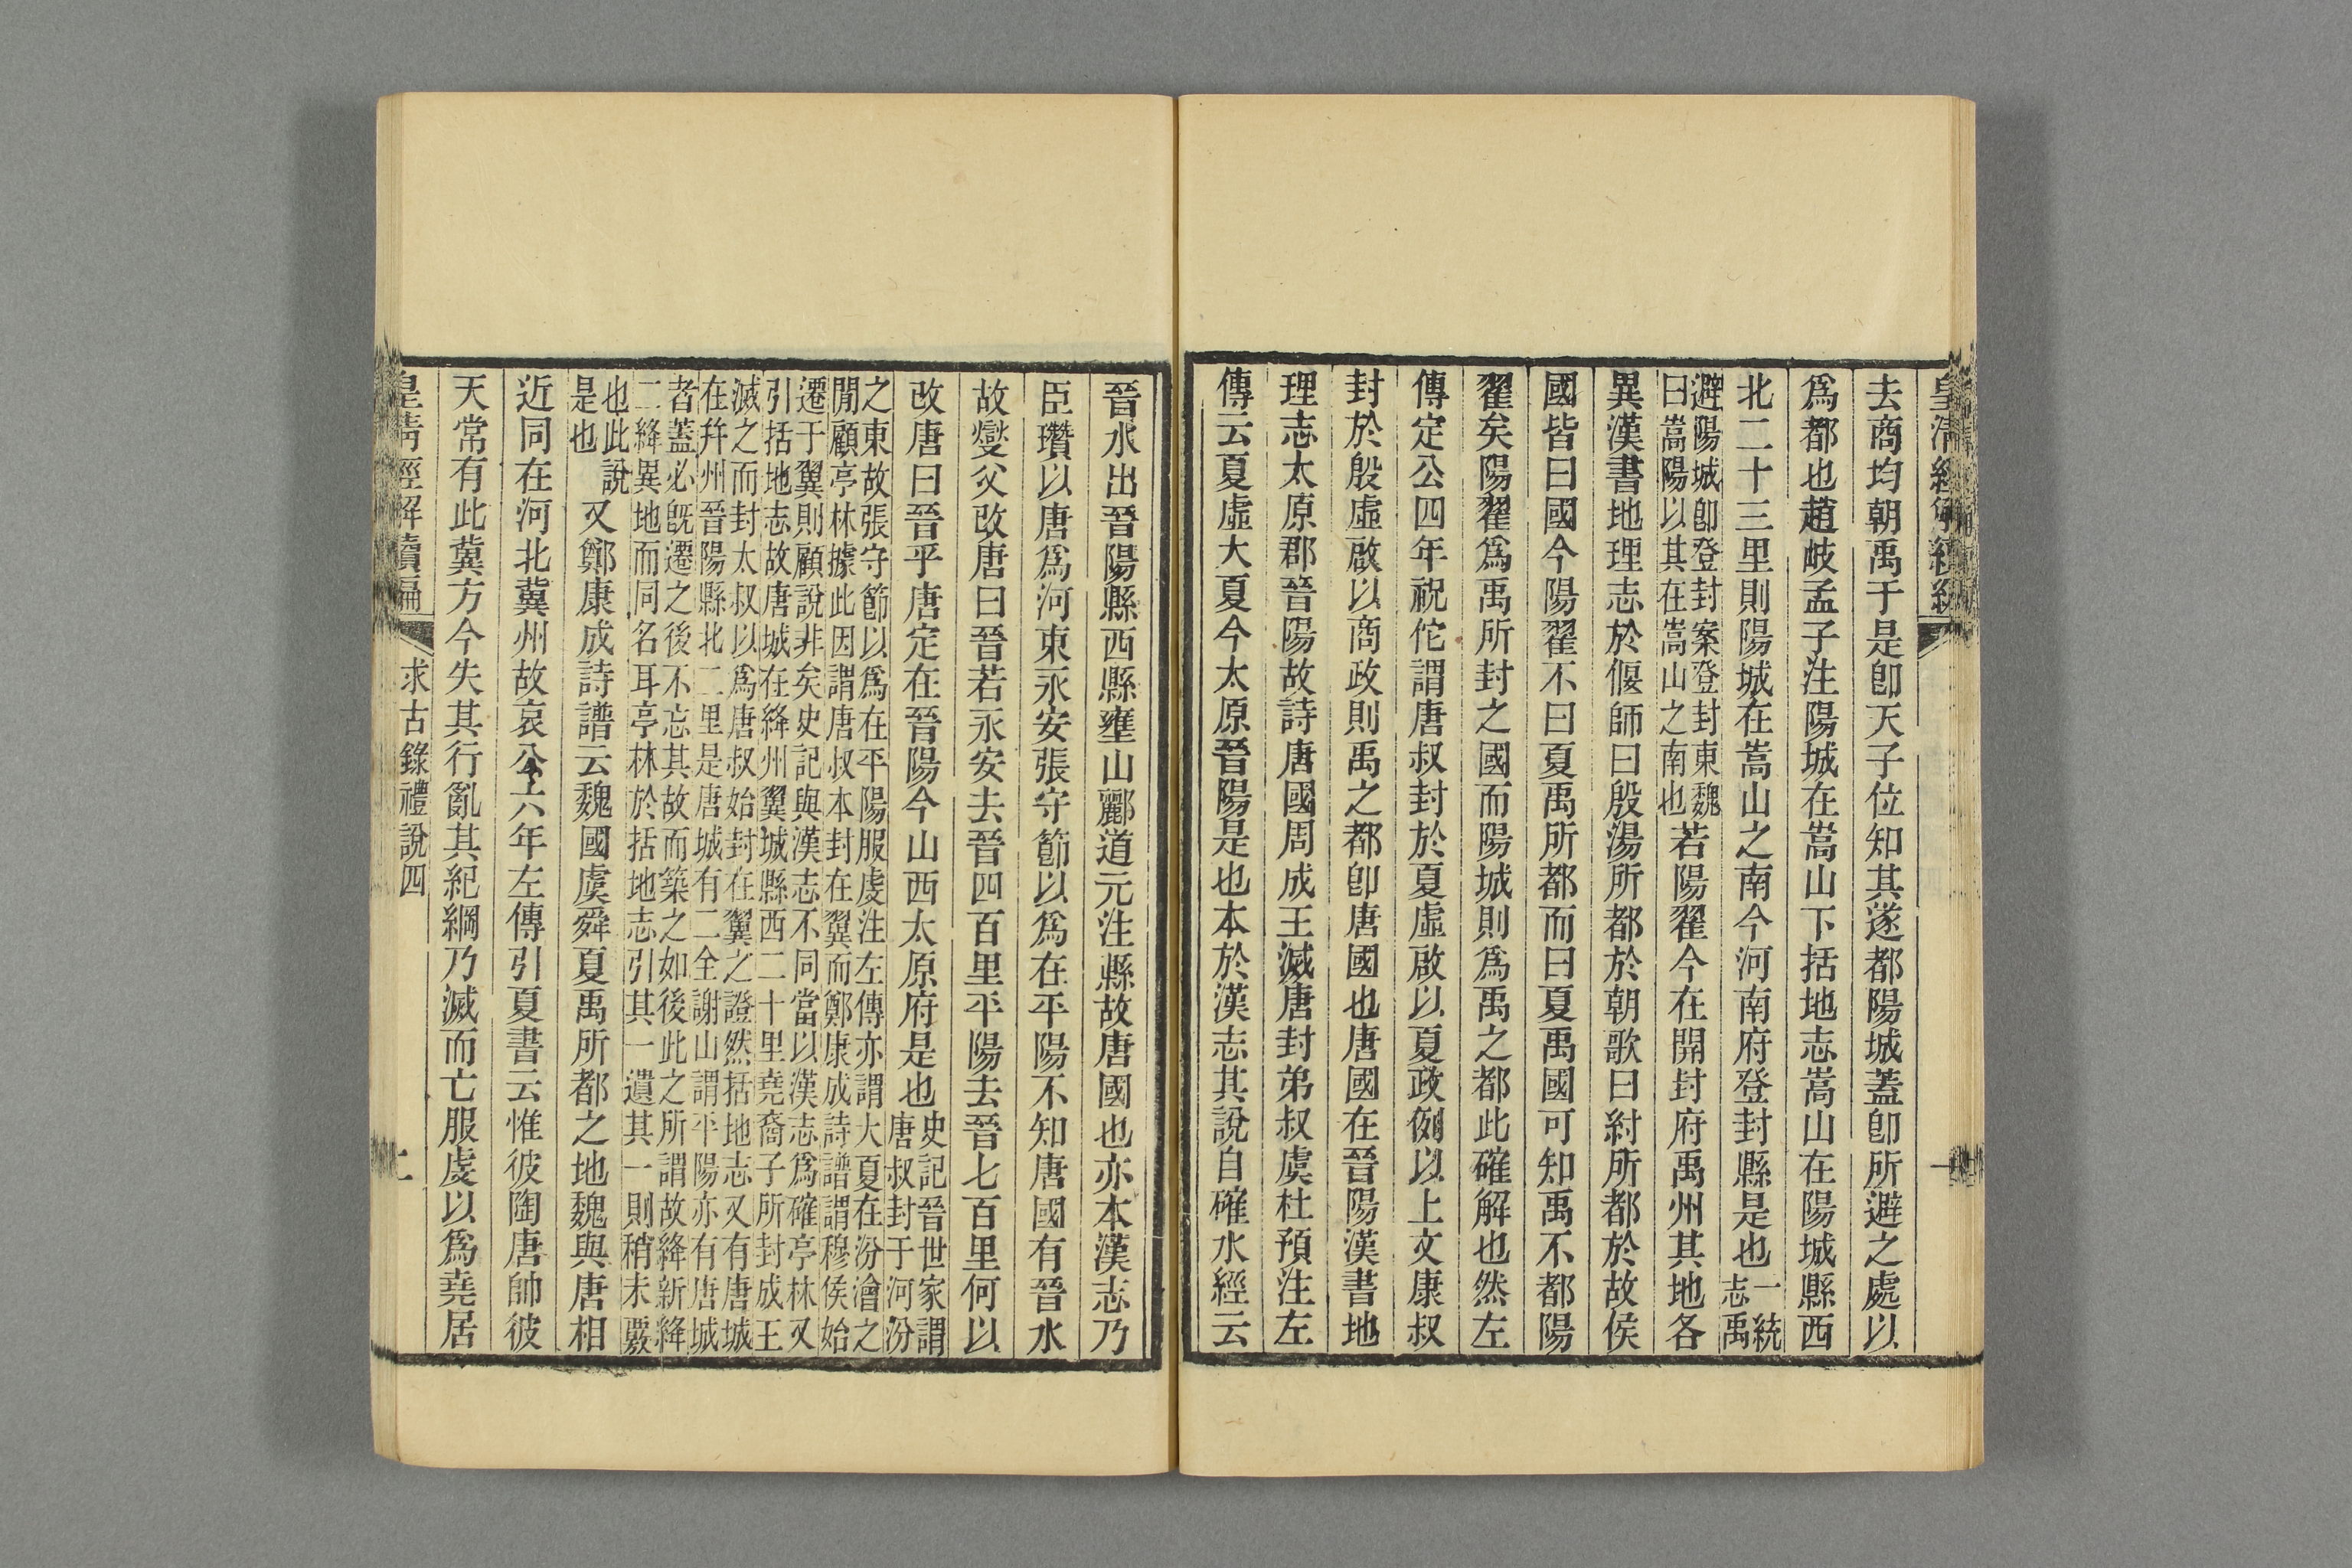 去商均朝禹于是卽天子位知其遂都陽城蓋卽所避之處以
爲都也趙岐孟子注陽城在嵩山下括地志嵩山在陽城縣西
北二十三里則陽城在嵩山之南今河南府登封縣是也一統志禹
避陽城卽登封案登封東魏
曰嵩陽以其在嵩山之南也若陽翟今在開封府禹州其地各
異漢書地理志於偃師曰殷湯所都於朝歌曰紂所都於故侯
國皆曰國今陽翟不曰夏禹所都而曰夏禹國可知禹不都陽
翟矣陽翟爲禹所封之國而陽城則爲禹之都此確解也然左
傳定公四年祝佗謂唐叔封於夏虛啟以夏政例以上文康叔
封於殷虛啟以商政則禹之都卽唐國也唐國在晉陽漢書地
理志太原郡晉陽故詩唐國周成王滅唐封弟叔虞杜預注左
傳云夏虛大夏今太原晉陽是也本於漢志其說自確水經云
晉水出晉陽縣西縣壅山酈道元注縣故唐國也亦本漢志乃
臣瓚以唐爲河東永安張守節以爲在平陽不知唐國有晉水
故燮父改唐曰晉若永安去晉四百里平陽去晉七百里何以
改唐曰晉乎唐定在晉陽今山西太原府是也史記晉世家謂
唐叔封于河汾
之東故張守節以爲在平陽服虔注左傳亦謂大夏在汾澮之
閒顧亭林據此因謂唐叔本封在翼而鄭康成詩譜謂穆侯始
遷于翼則顧說非矣史記與漢志不同當以漢志爲確亭林又
引括地志故唐城在絳州翼城縣西二十里堯裔子所封成王
滅之而封太叔以爲唐叔始封在翼之證然括地志又有唐城
在幷州晉陽縣北二里是唐城有二全謝山謂平陽亦有唐城
者蓋必旣遷之後不忘其故而築之如後此之所謂故絳新絳
二絳異地而同名耳亭林於括地志引其一遺其一則稍未覈
也此說
是也又鄭康成詩譜云魏國虞舜夏禹所都之地魏與唐相
近同在河北冀州故哀公六年左傳引夏書云惟彼陶唐帥彼
天常有此冀方今失其行亂其紀綱乃滅而亡服虔以爲堯居
皇淸經解續編
求古錄禮說四